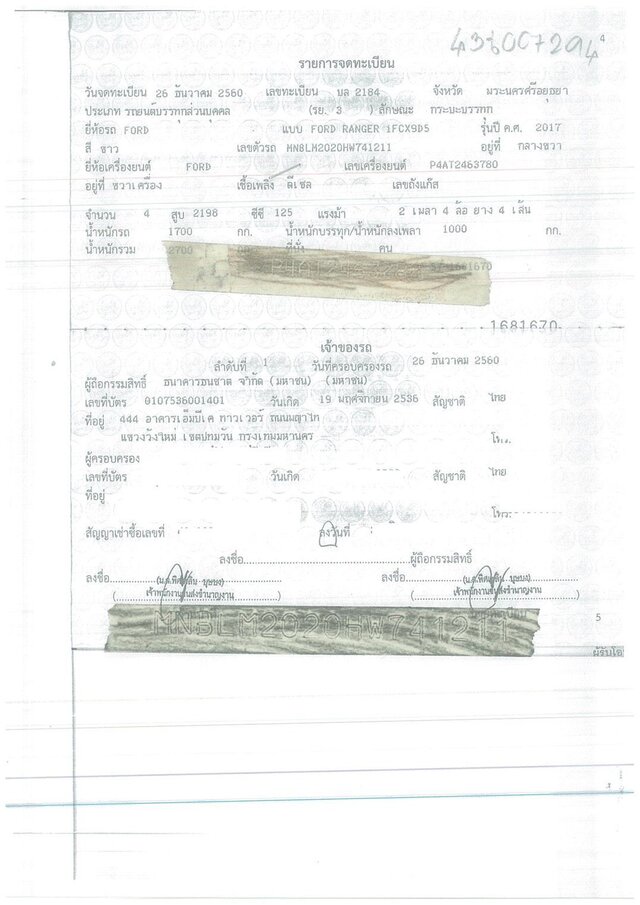 433007294
4
รายการจดทะเบียน
วันจดทะเบียน 26 ธันวาคม 2560 เลขทะเบียน บล 2184 จังหวัด พระนครศรีอยุธยา
ประเภท รถยนต์บรรทุกส่วนบุคคล (รย. 3 ) ลักษณะ กระบะบรรทุก
ยี่ห้อรถ FORD แบบ FORD RANGER 1FCX9D5 รุ่นปี ค.ศ. 2017
สี ขาว เลขตัวรถ MNBLM2020HW741211 อยู่ที่ กลางขวา
ยี่ห้อเครื่องยนต์ FORD เลขเครื่องยนต์ P4AT2463780
อยู่ที่ ขวาเครื่อง เชื้อเพลิง ดีเซล เลขถังแก๊ส
จำนวน 4 สูบ 2198 ซีซี 125 แรงม้า 2 เพลา 4 ล้อ ยาง 4 เส้น
น้ำหนักรถ 1700 กก. น้ำหนักบรรทุก/น้ำหนักลงเพลา 1000 กก.
น้ำหนักรวม 2700 ที่นั่ง คน
1681670
เจ้าของรถ
ลำดับที่ 1 วันที่ครอบครองรถ 26 ธันวาคม 2560
ผู้ถือกรรมสิทธิ์ ธนาคารธนชาต จำกัด (มหาชน) (มหาชน)
เลขที่บัตร 0107536001401 วันเกิด 19 พฤศจิกายน 2536 สัญชาติ ไทย
ที่อยู่ 444 อาคารเอ็มบีเค ทาวเวอร์ ถนนพญาไท
แขวงวังใหม่ เขตปทุมวัน กรุงเทพมหานคร โทร.
ผู้ครอบครอง
เลขที่บัตร วันเกิด สัญชาติ ไทย
ที่อยู่
โทร.
สัญญาเช่าซื้อเลขที่ ลงวันที่
ลงชื่อ ผู้ถือกรรมสิทธิ์
ลงชื่อ ลงชื่อ
เจ้าพนักงานขนส่งชำนาญงาน เจ้าพนักงานขนส่งชำนาญงาน
MNBLM2020HW741211
5
ผู้รับโอ